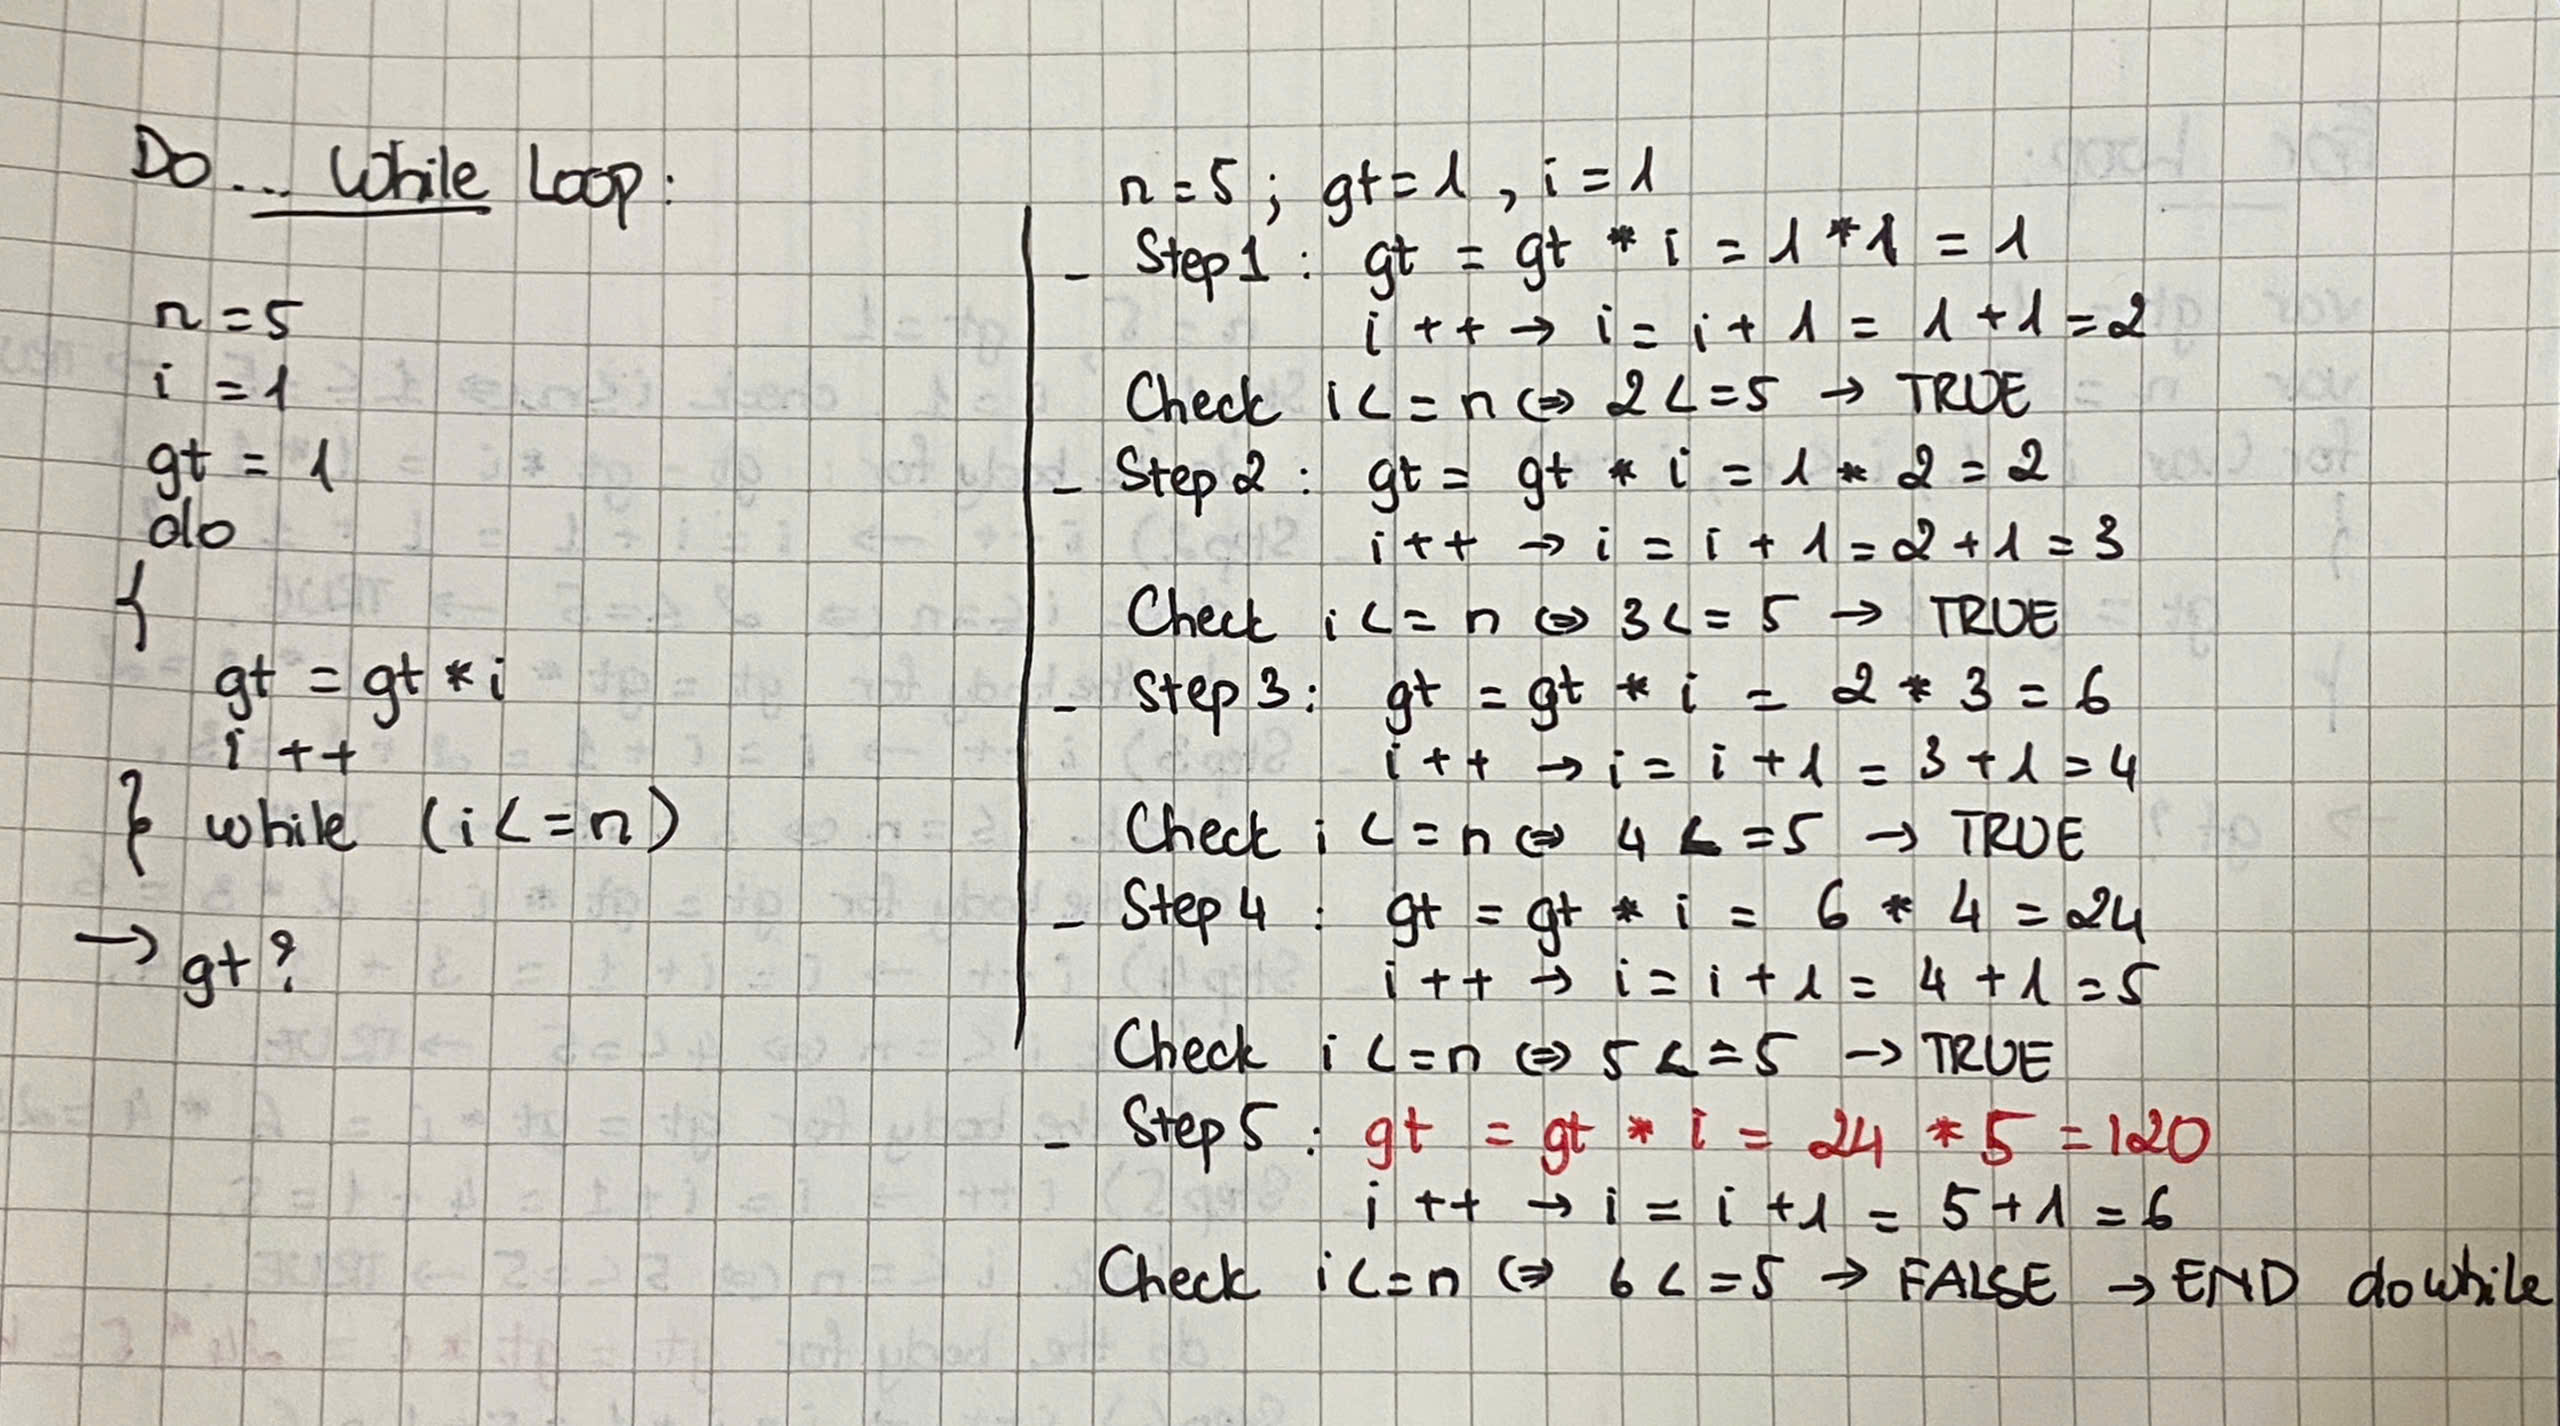 Do... While Loop:
n = 5
i = 1
gt = 1
do
{
gt = gt * i
i ++
} while (i <= n)
→ gt ?
n = 5 ; gt = 1 , i = 1
- Step 1 : gt = gt * i = 1 * 1 = 1
i ++ → i = i + 1 = 1 + 1 = 2
Check i <= n ⇔ 2 <= 5 → TRUE
- Step 2 : gt = gt * i = 1 * 2 = 2
i ++ → i = i + 1 = 2 + 1 = 3
Check i <= n ⇔ 3 <= 5 → TRUE
- Step 3 : gt = gt * i = 2 * 3 = 6
i ++ → i = i + 1 = 3 + 1 = 4
Check i <= n ⇔ 4 <= 5 → TRUE
- Step 4 : gt = gt * i = 6 * 4 = 24
i ++ → i = i + 1 = 4 + 1 = 5
Check i <= n ⇔ 5 <= 5 → TRUE
- Step 5 : gt = gt * i = 24 * 5 = 120
i ++ → i = i + 1 = 5 + 1 = 6
Check i <= n ⇔ 6 <= 5 → FALSE → END do while